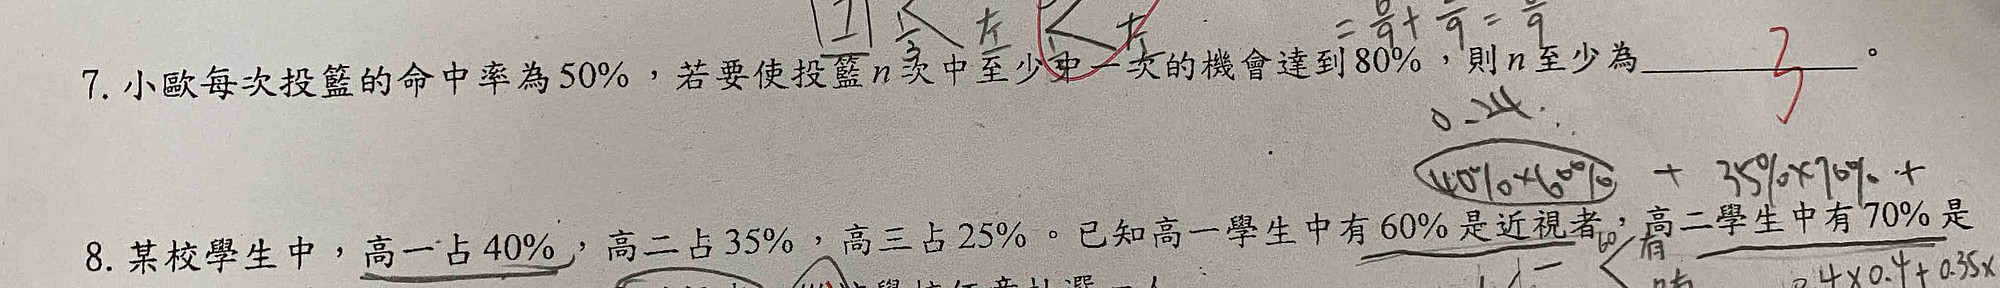 = 8/9 + /9 = /9
7. 小歐每次投籃的命中率為50%，若要使投籃n次中至少中一次的機會達到80%，則n至少為 3 。
0.24
40%×60% + 35%×70% +
8. 某校學生中，高一占40%，高二占35%，高三占25%。已知高一學生中有60%是近視者，高二學生中有70%是
有
0.4+0.35×